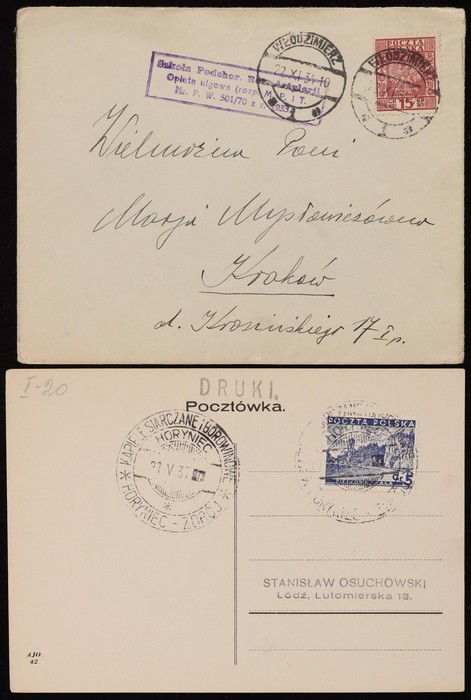 WŁODZIMIERZ
22 XI 34.10
Szkoła Podchor. Rez. Artylerji
Opłata ulgowa (rozp. M. P. i T.
Nr. P. W. 501/70 z r. 1933
POCZTA
POLSKA
15
WŁODZIMIERZ
Wielmożna Pani
Marja Mysłowiczówna
Kraków
ul. Krasińskiego 17 I p.
I-20
DRUKI.
Pocztówka.
KĄPIELE SIARCZANE I BOROWINOWE
HORYNIEC
HORYNIEC - ZDRÓJ
POCZTA POLSKA
Gr. 5
STANISŁAW OSUCHOWSKI
Łódź, Lutomierska 13.
AJO.
42